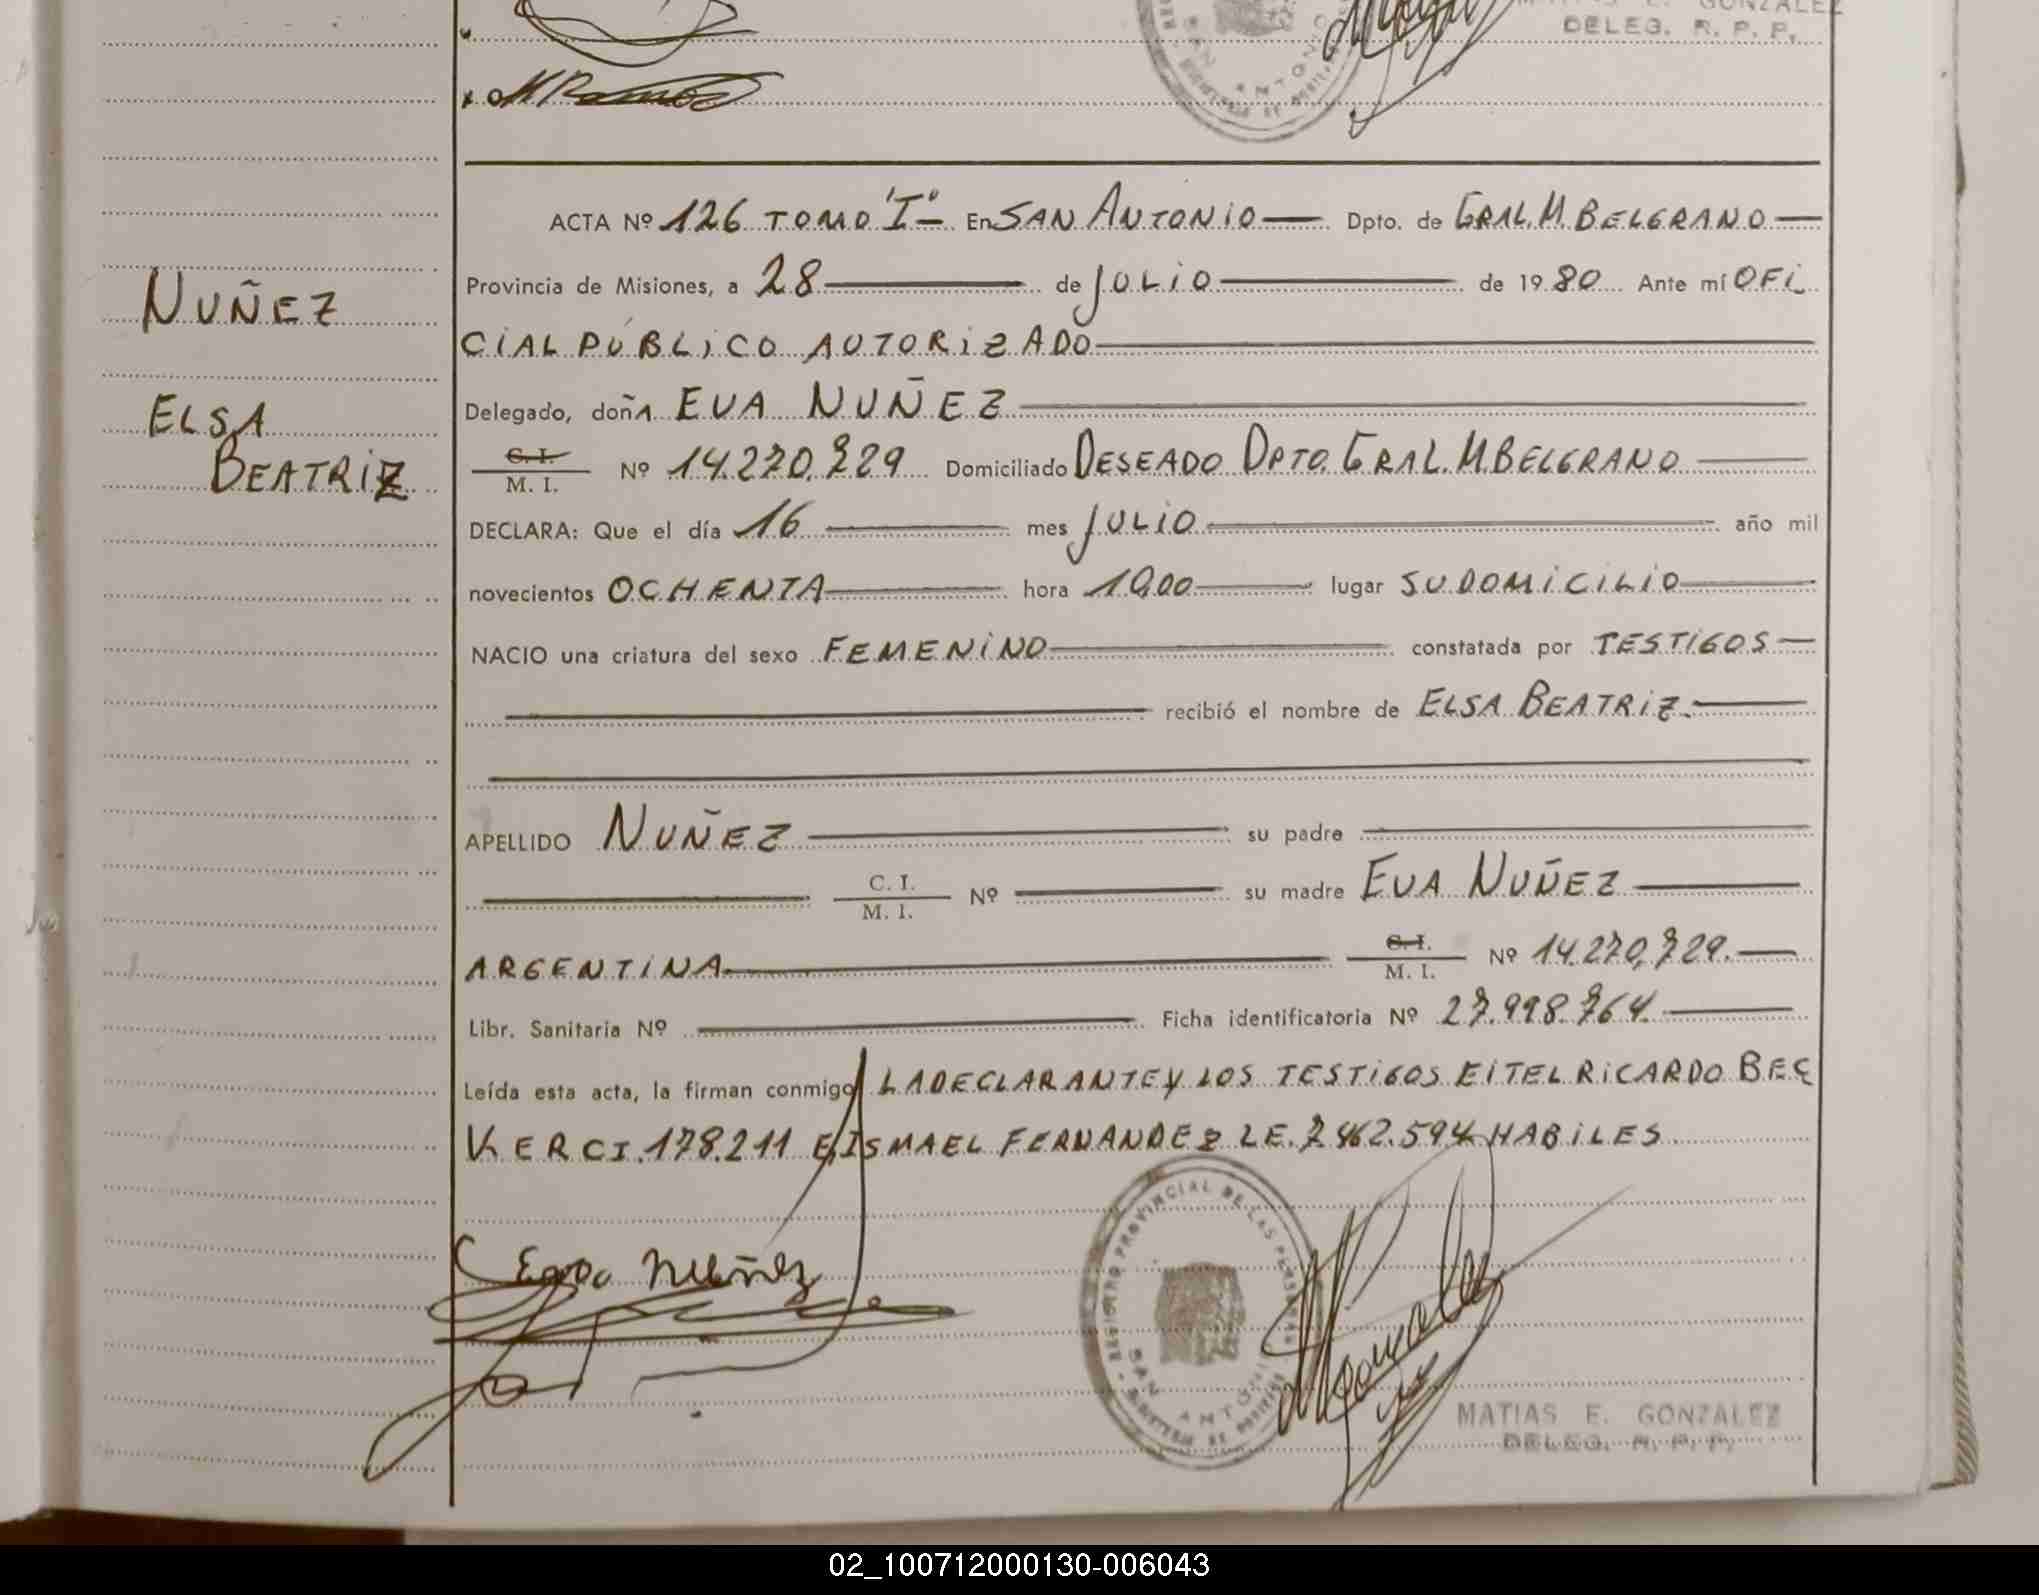 MATIAS E. GONZALEZ
DELEG. R. P. P.
ACTA Nº 126 TOMO "I" En SAN ANTONIO Dpto. de GRAL. M. BELGRANO
Provincia de Misiones, a 28 de JULIO de 1980 Ante mí OFI
CIAL PÚBLICO AUTORIZADO
NUÑEZ
Delegado, doña EVA NUÑEZ
ELSA
BEATRIZ
C. I. / M. I. Nº 14.270.729 Domiciliado DESEADO DPTO. GRAL. M. BELGRANO
DECLARA: Que el día 16 mes JULIO año mil
novecientos OCHENTA hora lugar SU DOMICILIO
NACIO una criatura del sexo FEMENINO constatada por TESTIGOS
recibió el nombre de ELSA BEATRIZ.
APELLIDO NUÑEZ su padre
C. I. / M. I. Nº su madre EVA NUÑEZ
ARGENTINA C. I. / M. I. Nº 14.270.729.
Libr. Sanitaria Nº Ficha identificatoria Nº 27.998.764.
Leída esta acta, la firman conmigo LA DECLARANTE Y LOS TESTIGOS EITEL RICARDO BEC
KER C.I. 178.211 E ISMAEL FERNANDEZ L.E. 7.462.594 HABILES
Eva Nuñez
REGISTRO PROVINCIAL DE LAS PERSONAS
SAN ANTONIO
MATIAS E. GONZALEZ
DELEG. R. P. P.
02_100712000130-006043